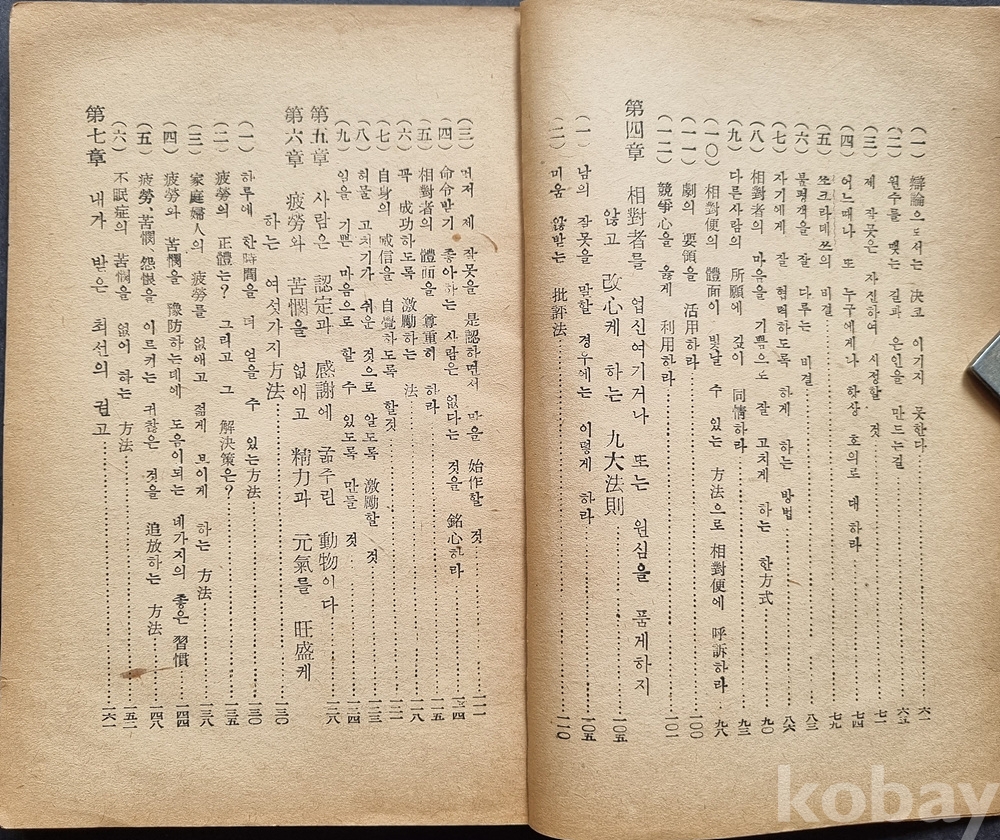 (一) 辯論으로서는 決코 이기지 못한다 六一
(二) 원수를 맺는 길과 은인을 만드는길 六五
(三) 제 잘못은 자진하여 시정할 것 七一
(四) 어느때나 또 누구에게나 항상 호의로 대하라 七四
(五) 쏘크라테쓰의 비결 七九
(六) 불평객을 잘 다루는 비결 八三
(七) 자기에게 잘 협력하도록 하게 하는 방법 八六
(八) 相對者의 마음을 기쁨으로 잘 고치게 하는 한方式 九〇
(九) 다른사람의 所願에 깊이 同情하라 九三
(一〇) 相對便의 體面이 빛날 수 있는 方法으로 相對便에 呼訴하라 九八
(一一) 劇의 要領을 活用하라 一〇〇
(一二) 競爭心을 옳게 利用하라 一〇一
第四章 相對者를 업신여기거나 또는 원심을 품게하지
않고 改心케 하는 九大法則 一〇五
(一) 남의 잘못을 말할 경우에는 이렇게 하라 一〇五
(二) 미움 않받는 批評法 一一〇
(三) 먼저 제 잘못을 是認하면서 말을 始作할 것
(四) 命令받기 좋아하는 사람은 없다는 것을 銘心하라
(五) 相對者의 體面을 尊重히 하라 一一五
(六) 꼭 成功하도록 激勵하는 法
(七) 自身의 威信을 自覺하도록 할것
(八) 허물 고치기가 쉬운 것으로 알도록 激勵할 것
(九) 일을 기쁜 마음으로 할 수 있도록 만들 것
第五章 사람은 認定과 感謝에 굶주린 動物이다 一二八
第六章 疲勞와 苦憫을 없애고 精力과 元氣를 旺盛케
하는 여섯가지 方法 一三〇
(一) 하루에 한時間을 더 얻을 수 있는方法 一三〇
(二) 疲勞의 正體는? 그리고 그 解決策은? 一三五
(三) 家庭婦人의 疲勞를 없애고 젊게 보이게 하는 方法 一三八
(四) 疲勞와 苦憫을 豫防하는데에 도움이되는 네가지의 좋은 習慣 一四四
(五) 疲勞、苦憫、怨恨을 이르켜는 귀찮은 것을 追放하는 方法 一四八
(六) 不眠症의 苦憫을 없이 하는 方法 一五二
第七章 내가 받은 최선의 권고 一六一
kobay